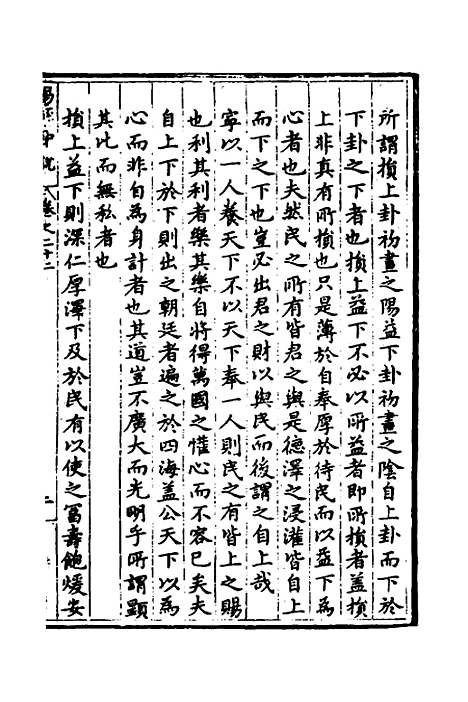 所謂損上卦初畫之陽益下卦初畫之陰自上卦而下於
下卦之下者也損上益下不必以所益者即所損者蓋損
上非真有所損也只是薄於自奉厚於待民而以益下為
心者也夫然民之所有皆君之與是德澤之浸灌皆自上
而下之下也豈必出君之財以與民而後謂之自上哉
寧以一人養天下不以天下奉一人則民之有皆上之賜
也利其利者樂其樂自將得萬國之懽心而不容已矣夫
自上下於下則出之朝廷者遍之於四海盖公天下以為
心而非自為身計者也其道豈不廣大而光明乎所謂顯
其比而無私者也
損上益下則深仁厚澤下及於民有以使之冨壽飽煖安
卷之二十二